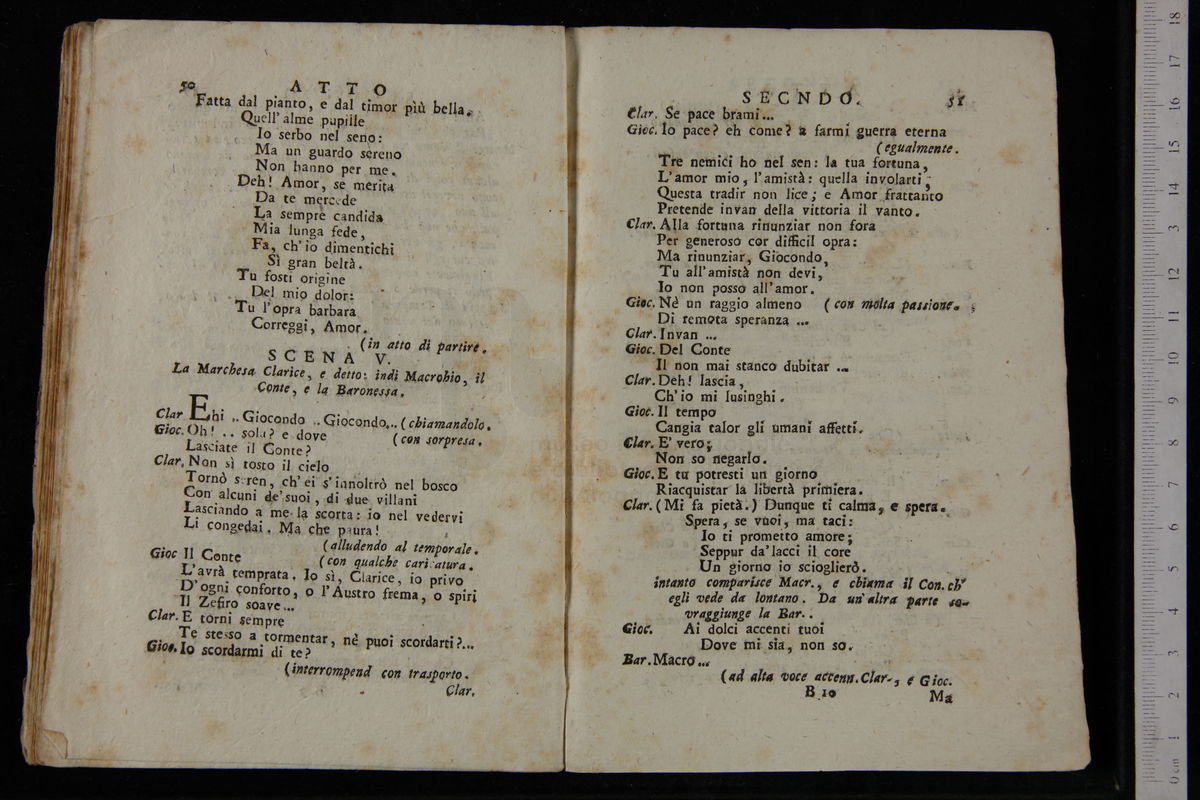 50 ATTO
Fatta dal pianto, e dal timor più bella.
Quell'alme pupille
Io serbo nel seno:
Ma un guardo sereno
Non hanno per me.
Deh! Amor, se merita
Da te mercede
La sempre candida
Mia lunga fede,
Fa, ch'io dimentichi
Sì gran beltà.
Tu fosti origine
Del mio dolor:
Tu l'opra barbara
Correggi, Amor.
(in atto di partire.
SCENA V.
La Marchesa Clarice, e detto: indi Macrobio, il
Conte, e la Baronessa.
Clar Ehi .. Giocondo .. Giocondo... (chiamandolo.
Gioc. Oh! .. sola? e dove (con sorpresa.
Lasciate il Conte?
Clar. Non sì tosto il cielo
Tornò seren, ch'ei s'innoltrò nel bosco
Con alcuni de'suoi, di due villani
Lasciando a me la scorta: io nel vedervi
Li congedai. Ma che paura!
(alludendo al temporale.
Gioc Il Conte (con qualche caricatura.
L'avrà temprata. Io sì, Clarice, io privo
D'ogni conforto, o l'Austro frema, o spiri
Il Zefiro soave...
Clar. E torni sempre
Te stesso a tormentar, nè puoi scordarti?...
Gioc. Io scordarmi di te?
(interrompend con trasporto.
Clar.
SECNDO. 51
Clar. Se pace brami...
Gioc. Io pace? eh come? a farmi guerra eterna
(egualmente.
Tre nemici ho nel sen: la tua fortuna,
L'amor mio, l'amistà: quella involarti,
Questa tradir non lice; e Amor frattanto
Pretende invan della vittoria il vanto.
Clar. Alla fortuna rinunziar non fora
Per generoso cor difficil opra:
Ma rinunziar, Giocondo,
Tu all'amistà non devi,
Io non posso all'amor.
Gioc. Nè un raggio almeno (con molta passione.
Di remota speranza ...
Clar. Invan ...
Gioc. Del Conte
Il non mai stanco dubitar ...
Clar. Deh! lascia,
Ch'io mi lusinghi.
Gioc. Il tempo
Cangia talor gli umani affetti.
Clar. E' vero;
Non so negarlo.
Gioc. E tu potresti un giorno
Riacquistar la libertà primiera.
Clar. (Mi fa pietà.) Dunque ti calma, e spera.
Spera, se vuoi, ma taci:
Io ti prometto amore;
Seppur da'lacci il core
Un giorno io scioglierò.
intanto comparisce Macr., e chiama il Con. ch'
egli vede da lontano. Da un'altra parte so-
vraggiunge la Bar..
Gioc. Ai dolci accenti tuoi
Dove mi sia, non so.
Bar. Macro...
(ad alta voce accenn. Clar., e Gioc.
B 10 Ma
0 cm 1 2 3 4 5 6 7 8 9 10 11 12 13 14 15 16 17 18